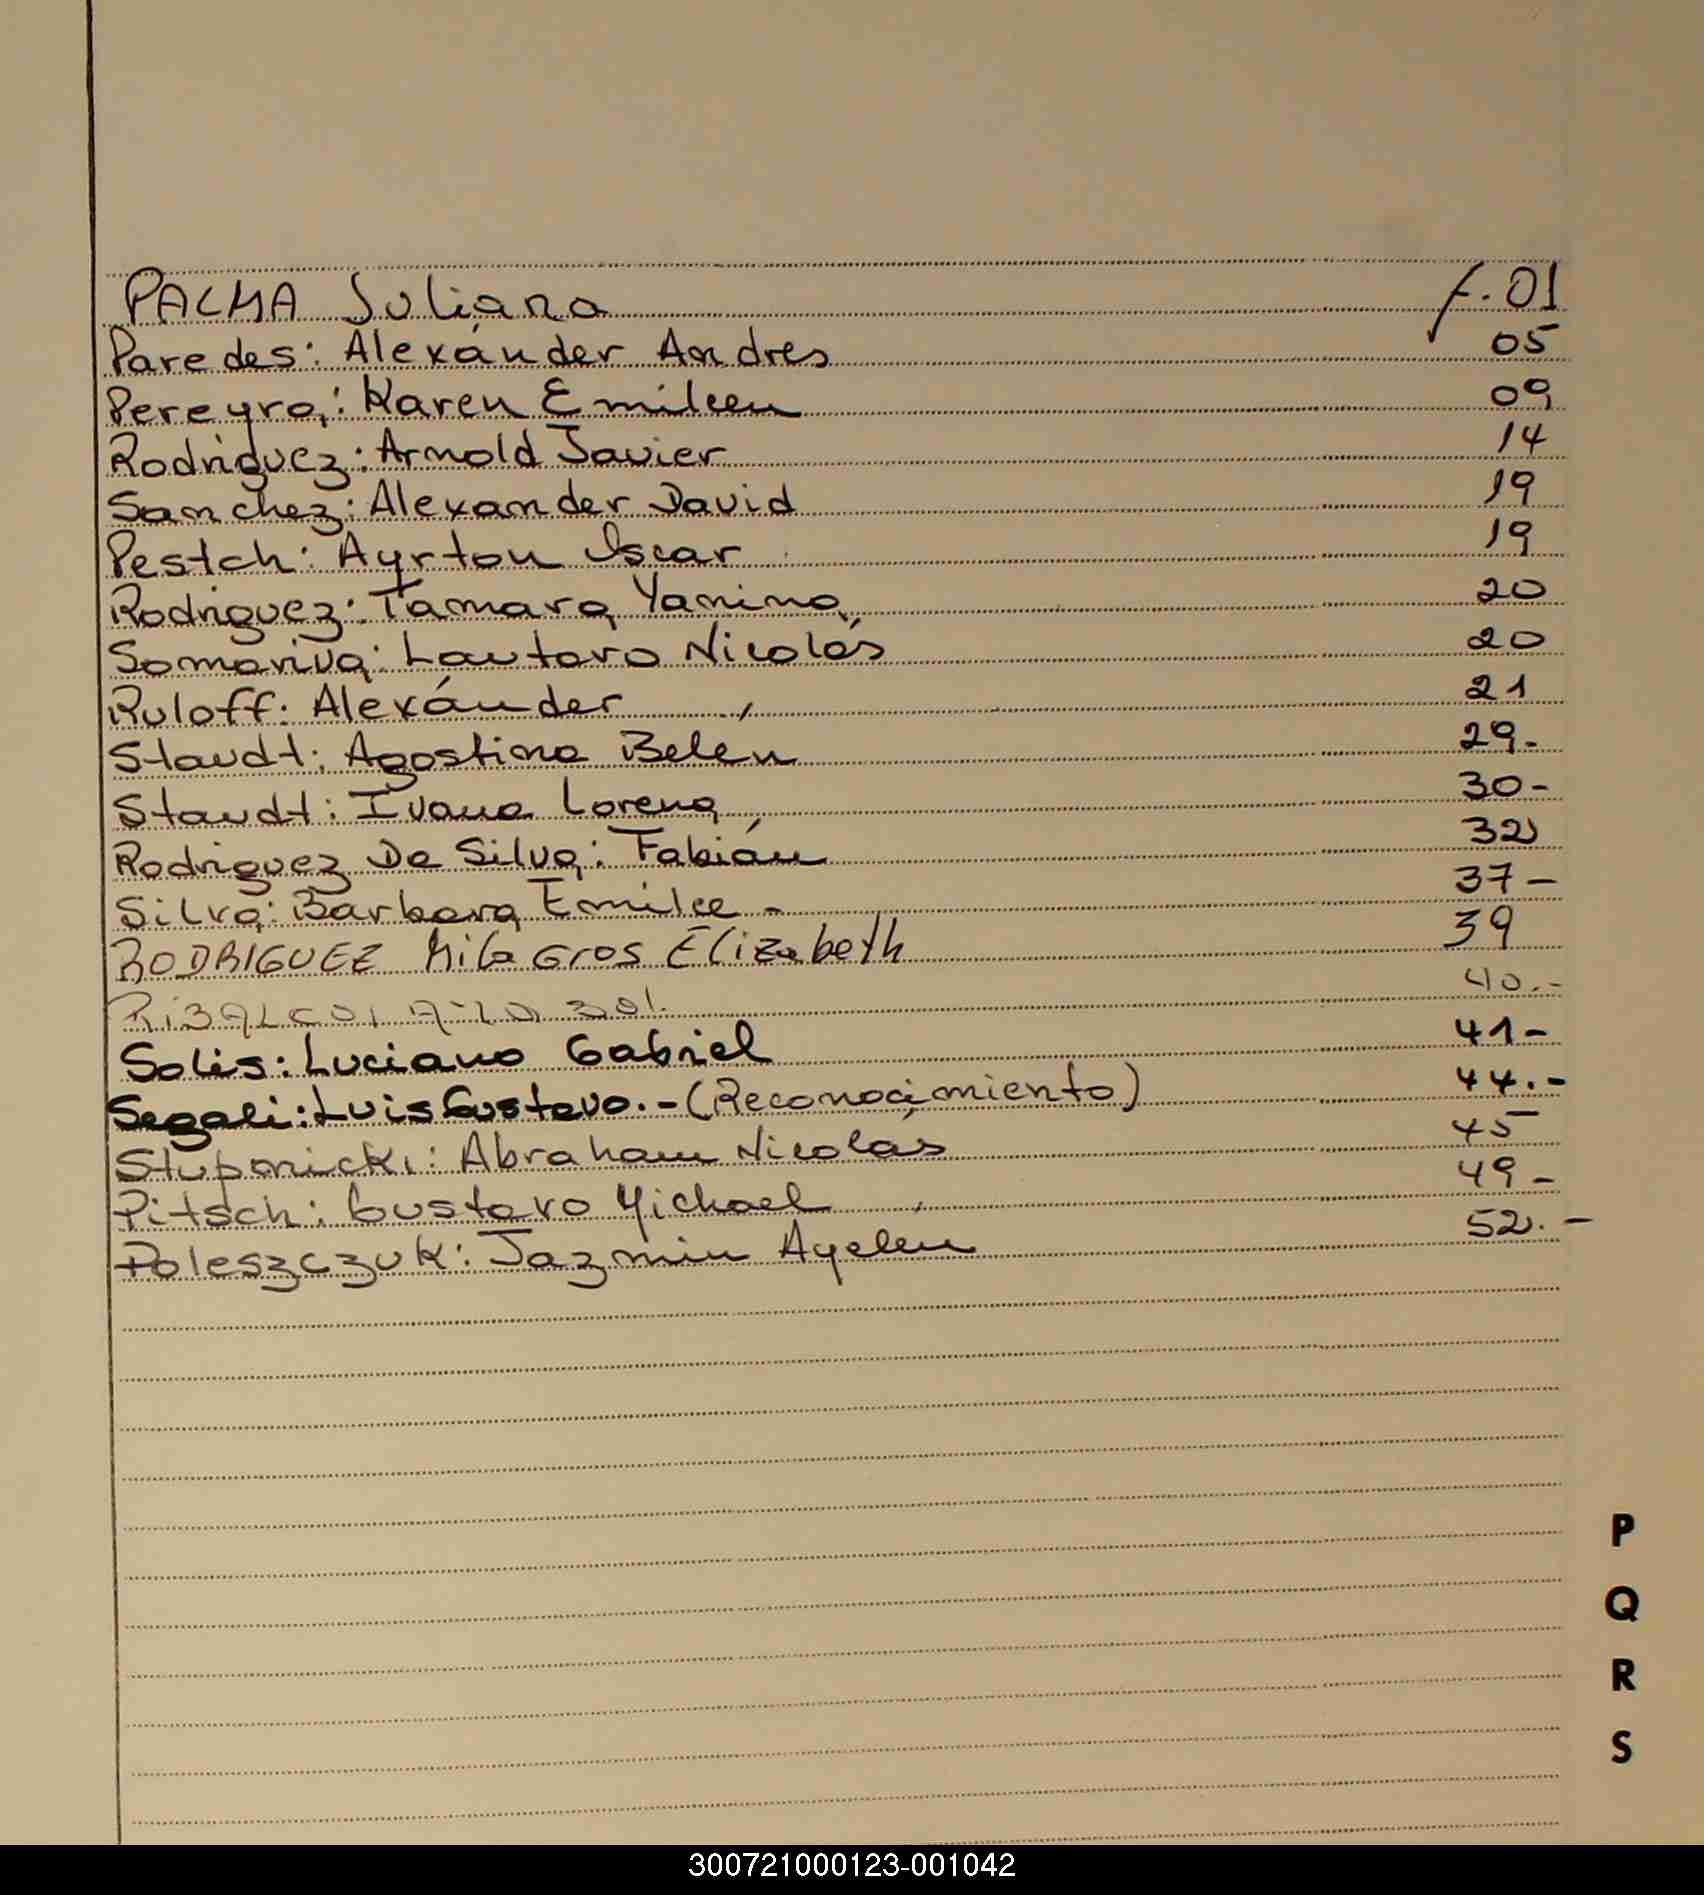 PALMA Juliana f. 01
Paredes: Alexánder Andres 05
Pereyra: Karen Emilcen 09
Rodriguez: Arnold Javier 14
Sanchez: Alexander David 19
Pestch: Ayrton Oscar 19
Rodriguez: Tamara Yanina 20
Somariva: Lautaro Nicolás 20
Ruloff: Alexánder 21
Staudt: Agostina Belen 29.
Staudt: Ivana Lorena 30-
Rodriguez Da Silva: Fabián 32
Silva: Barbara Emilce - 37-
RODRIGUEZ Milagros Elizabeth 39
40.-
Solis: Luciano Gabriel 41-
Segali: Luis Gustavo.- (Reconocimiento) 44.-
Stuponicki: Abraham Nicolás 45-
Pitsch: Gustavo Michael 49-
Poleszczuk: Jazmin Ayelen 52.-
P
Q
R
S
300721000123-001042